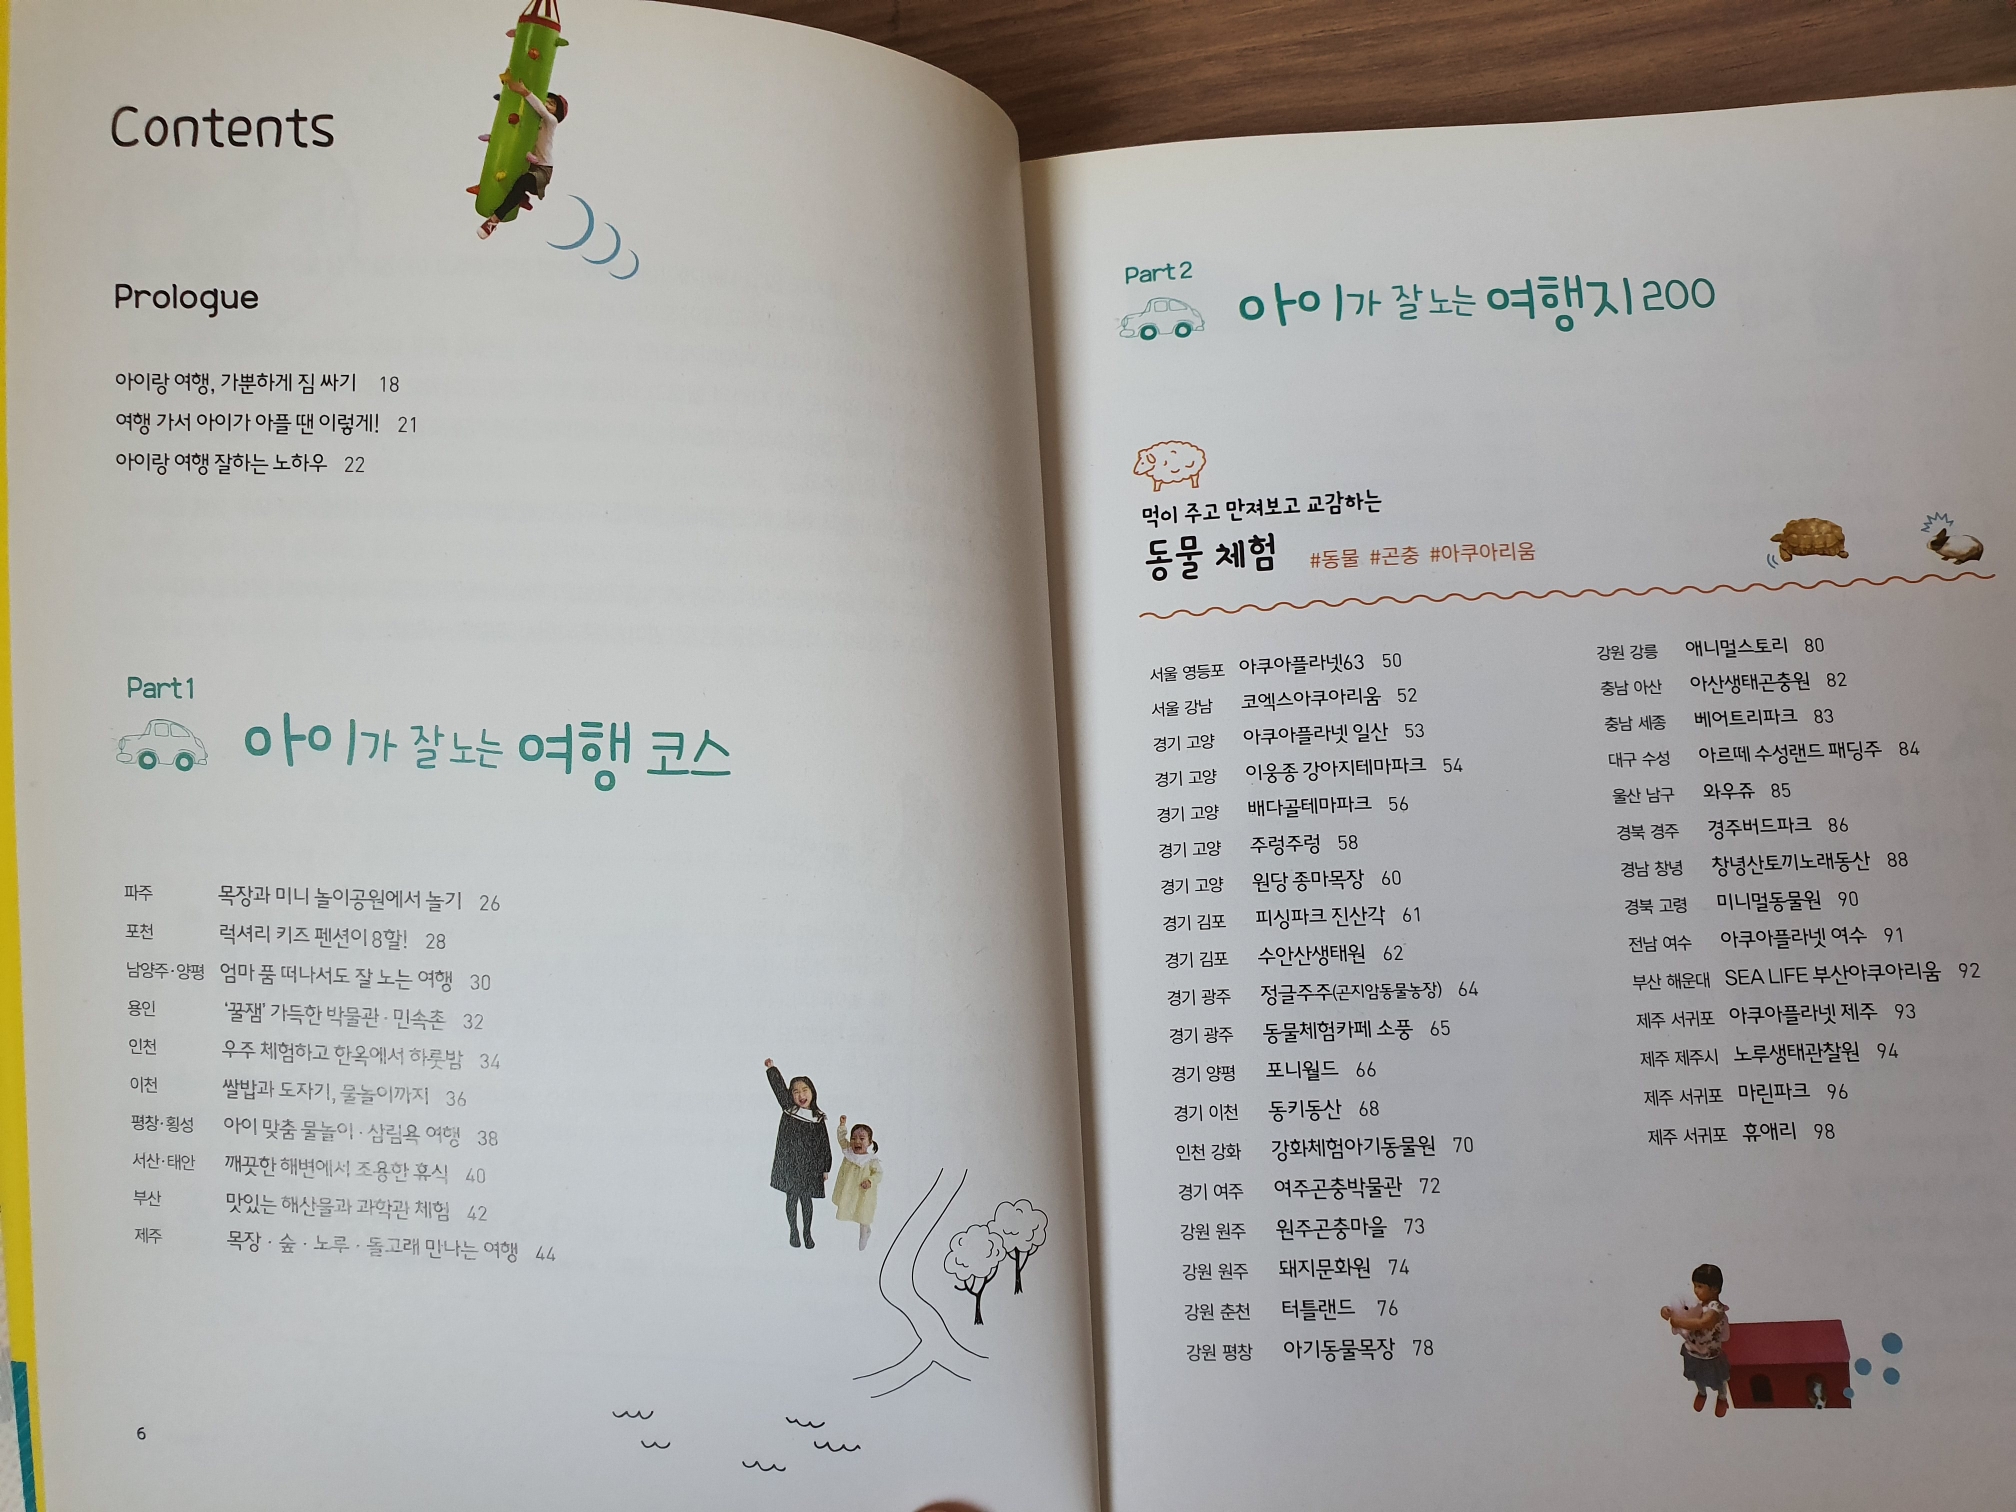 Contents
Prologue
아이랑 여행, 가뿐하게 짐 싸기 18
여행 가서 아이가 아플 땐 이렇게! 21
아이랑 여행 잘하는 노하우 22
Part1
아이가 잘 노는 여행 코스
파주 목장과 미니 놀이공원에서 놀기 26
포천 럭셔리 키즈 펜션이 8할! 28
남양주·양평 엄마 품 떠나서도 잘 노는 여행 30
용인 '꿀잼' 가득한 박물관·민속촌 32
인천 우주 체험하고 한옥에서 하룻밤 34
이천 쌀밥과 도자기, 물놀이까지 36
평창·횡성 아이 맞춤 물놀이·삼림욕 여행 38
서산·태안 깨끗한 해변에서 조용한 휴식 40
부산 맛있는 해산물과 과학관 체험 42
제주 목장·숲·노루·돌고래 만나는 여행 44
6
Part2
아이가 잘 노는 여행지 200
먹이 주고 만져보고 교감하는
동물 체험 #동물 #곤충 #아쿠아리움
서울 영등포 아쿠아플라넷63 50
서울 강남 코엑스아쿠아리움 52
경기 고양 아쿠아플라넷 일산 53
경기 고양 이웅종 강아지테마파크 54
경기 고양 배다골테마파크 56
경기 고양 주렁주렁 58
경기 고양 원당 종마목장 60
경기 김포 피싱파크 진산각 61
경기 김포 수안산생태원 62
경기 광주 정글주주(곤지암동물농장) 64
경기 광주 동물체험카페 소풍 65
경기 양평 포니월드 66
경기 이천 동키동산 68
인천 강화 강화체험아기동물원 70
경기 여주 여주곤충박물관 72
강원 원주 원주곤충마을 73
강원 원주 돼지문화원 74
강원 춘천 터틀랜드 76
강원 평창 아기동물목장 78
강원 강릉 애니멀스토리 80
충남 아산 아산생태곤충원 82
충남 세종 베어트리파크 83
대구 수성 아르떼 수성랜드 패딩주 84
울산 남구 와우쥬 85
경북 경주 경주버드파크 86
경남 창녕 창녕산토끼노래동산 88
경북 고령 미니멀동물원 90
전남 여수 아쿠아플라넷 여수 91
부산 해운대 SEA LIFE 부산아쿠아리움 92
제주 서귀포 아쿠아플라넷 제주 93
제주 제주시 노루생태관찰원 94
제주 서귀포 마린파크 96
제주 서귀포 휴애리 98